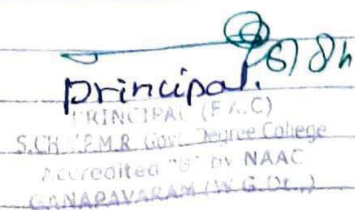 Principal.
PRINCIPAL (F.A.C)
S.CH.V.P.M.R Gov. Degree College
Accredited "B" by NAAC
GANAPAVARAM (W.G.Dt.,)